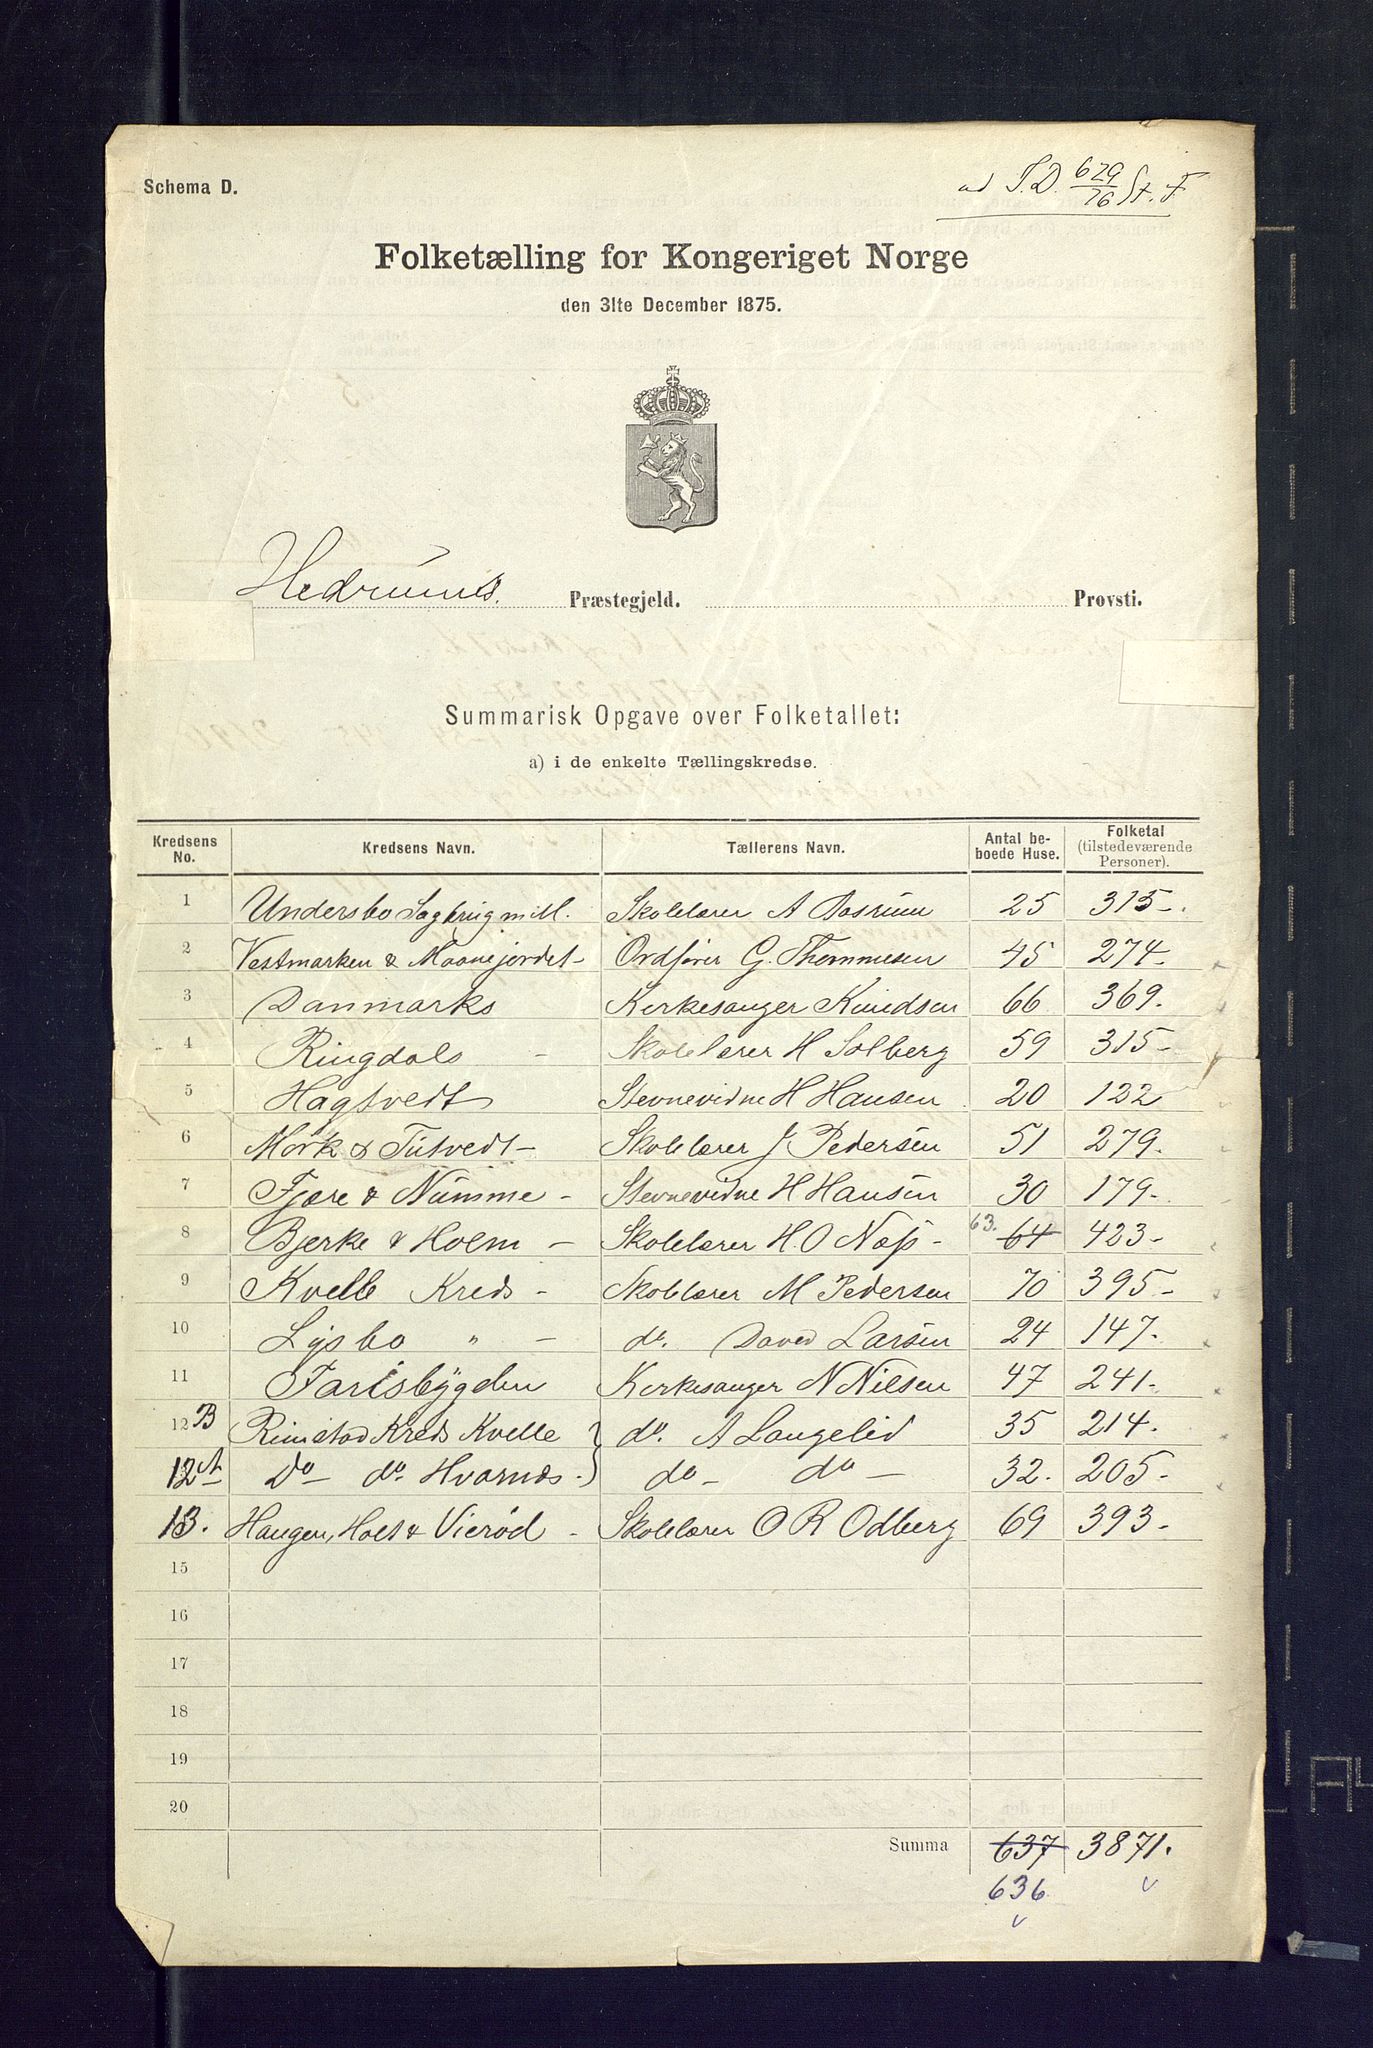 Schema D.
ad S.D. 629/76 St. F
Folketælling for Kongeriget Norge
den 31te December 1875.
Hedrums Præstegjeld. Provsti.
Summarisk Opgave over Folketallet:
a) i de enkelte Tællingskredse.
Kredsens No. Kredsens Navn. Tællerens Navn. Antal beboede Huse. Folketal (tilstedeværende Personer).
1 Undersbo Sagbrug m M. Skolelærer A 25 315-.
2 Vestmarken & Maanejordet- Ordfører G. Thommesen 45 274-
3 Danmarks Kirkesanger Knudsen 66 369.
4 Ringdals - Skolelærer H Solberg 59 315-
5 Hagtvedt Stevnevidne H Hansen 20 122
6 Mørk & Tutvedt- Skolelærer J Pedersen 51 279.
7 Fjære & Numme - Stevnevidne H Hansen 30 179-
8 Bjerke & Holm - Skolelærer H. O Næss - 63. 64 423-
9 Kvelle Kreds - Skolelærer M Pedersen 70 395-
10 Lysbo " - do. David Larsen 24 147-
11 Farisbygden Kirkesanger N Nilsen 47 241-
12B Rimstad Kreds Kvelle do. A Langelid 35 214.
12A Do- do. Hvarnes- do- do- 32. 205-
13. Haugen, Holt & Vierød - Skolelærer O R Odberg 69 393-
15
16
17
18
19
20
Summa 637 3871.
636